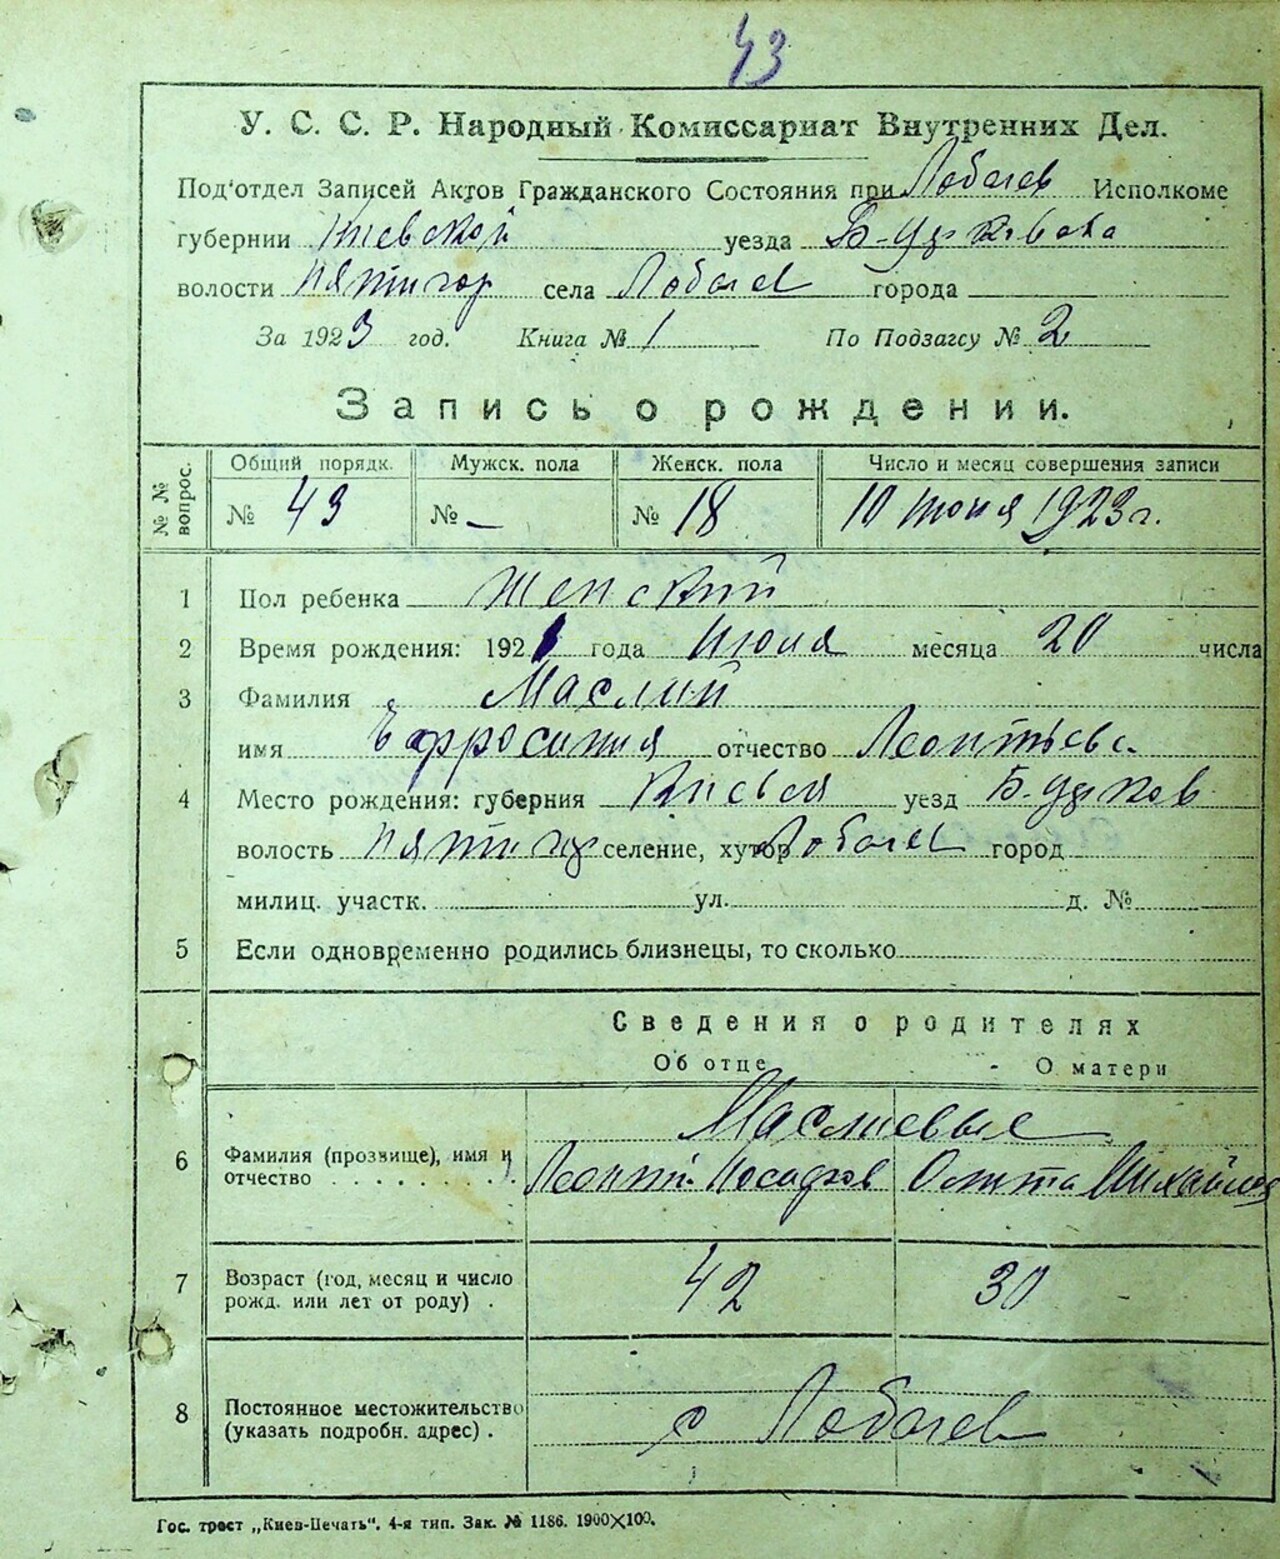 43
У. С. С. Р. Народный Комиссариат Внутренних Дел.
Под'отдел Записей Актов Гражданского Состояния при Лобачев Исполкоме
губернии Киевской уезда Б-Церковска
волости Пятигор села Лобачев города
За 1923 год. Книга № 1 По Подзагсу № 2
Запись о рождении.
№№ вопрос. Общий порядк. Мужск. пола Женск. пола Число и месяц совершения записи
№ 43 № – № 18 10 июня 1923 г.
1 Пол ребенка Женский
2 Время рождения: 192 года месяца 20 числа
3 Фамилия Маслий
имя Ефросиния отчество Леонтьева
4 Место рождения: губерния Киевск уезд Б-Церков
волость Пятигор селение, хутор Лобачев город
милиц. участк. ул. д. №
5 Если одновременно родились близнецы, то сколько
Сведения о родителях
Об отце О матери
Маслиевые
6 Фамилия (прозвище), имя и
отчество . . . . . . . . . Леонтий Михайлов
7 Возраст (год, месяц и число
рожд. или лет от роду) . 42 30
8 Постоянное местожительство
(указать подробн. адрес) . с Лобачев
Гос. трест „Киев-Печать“. 4-я тип. Зак. № 1186. 1900×100.